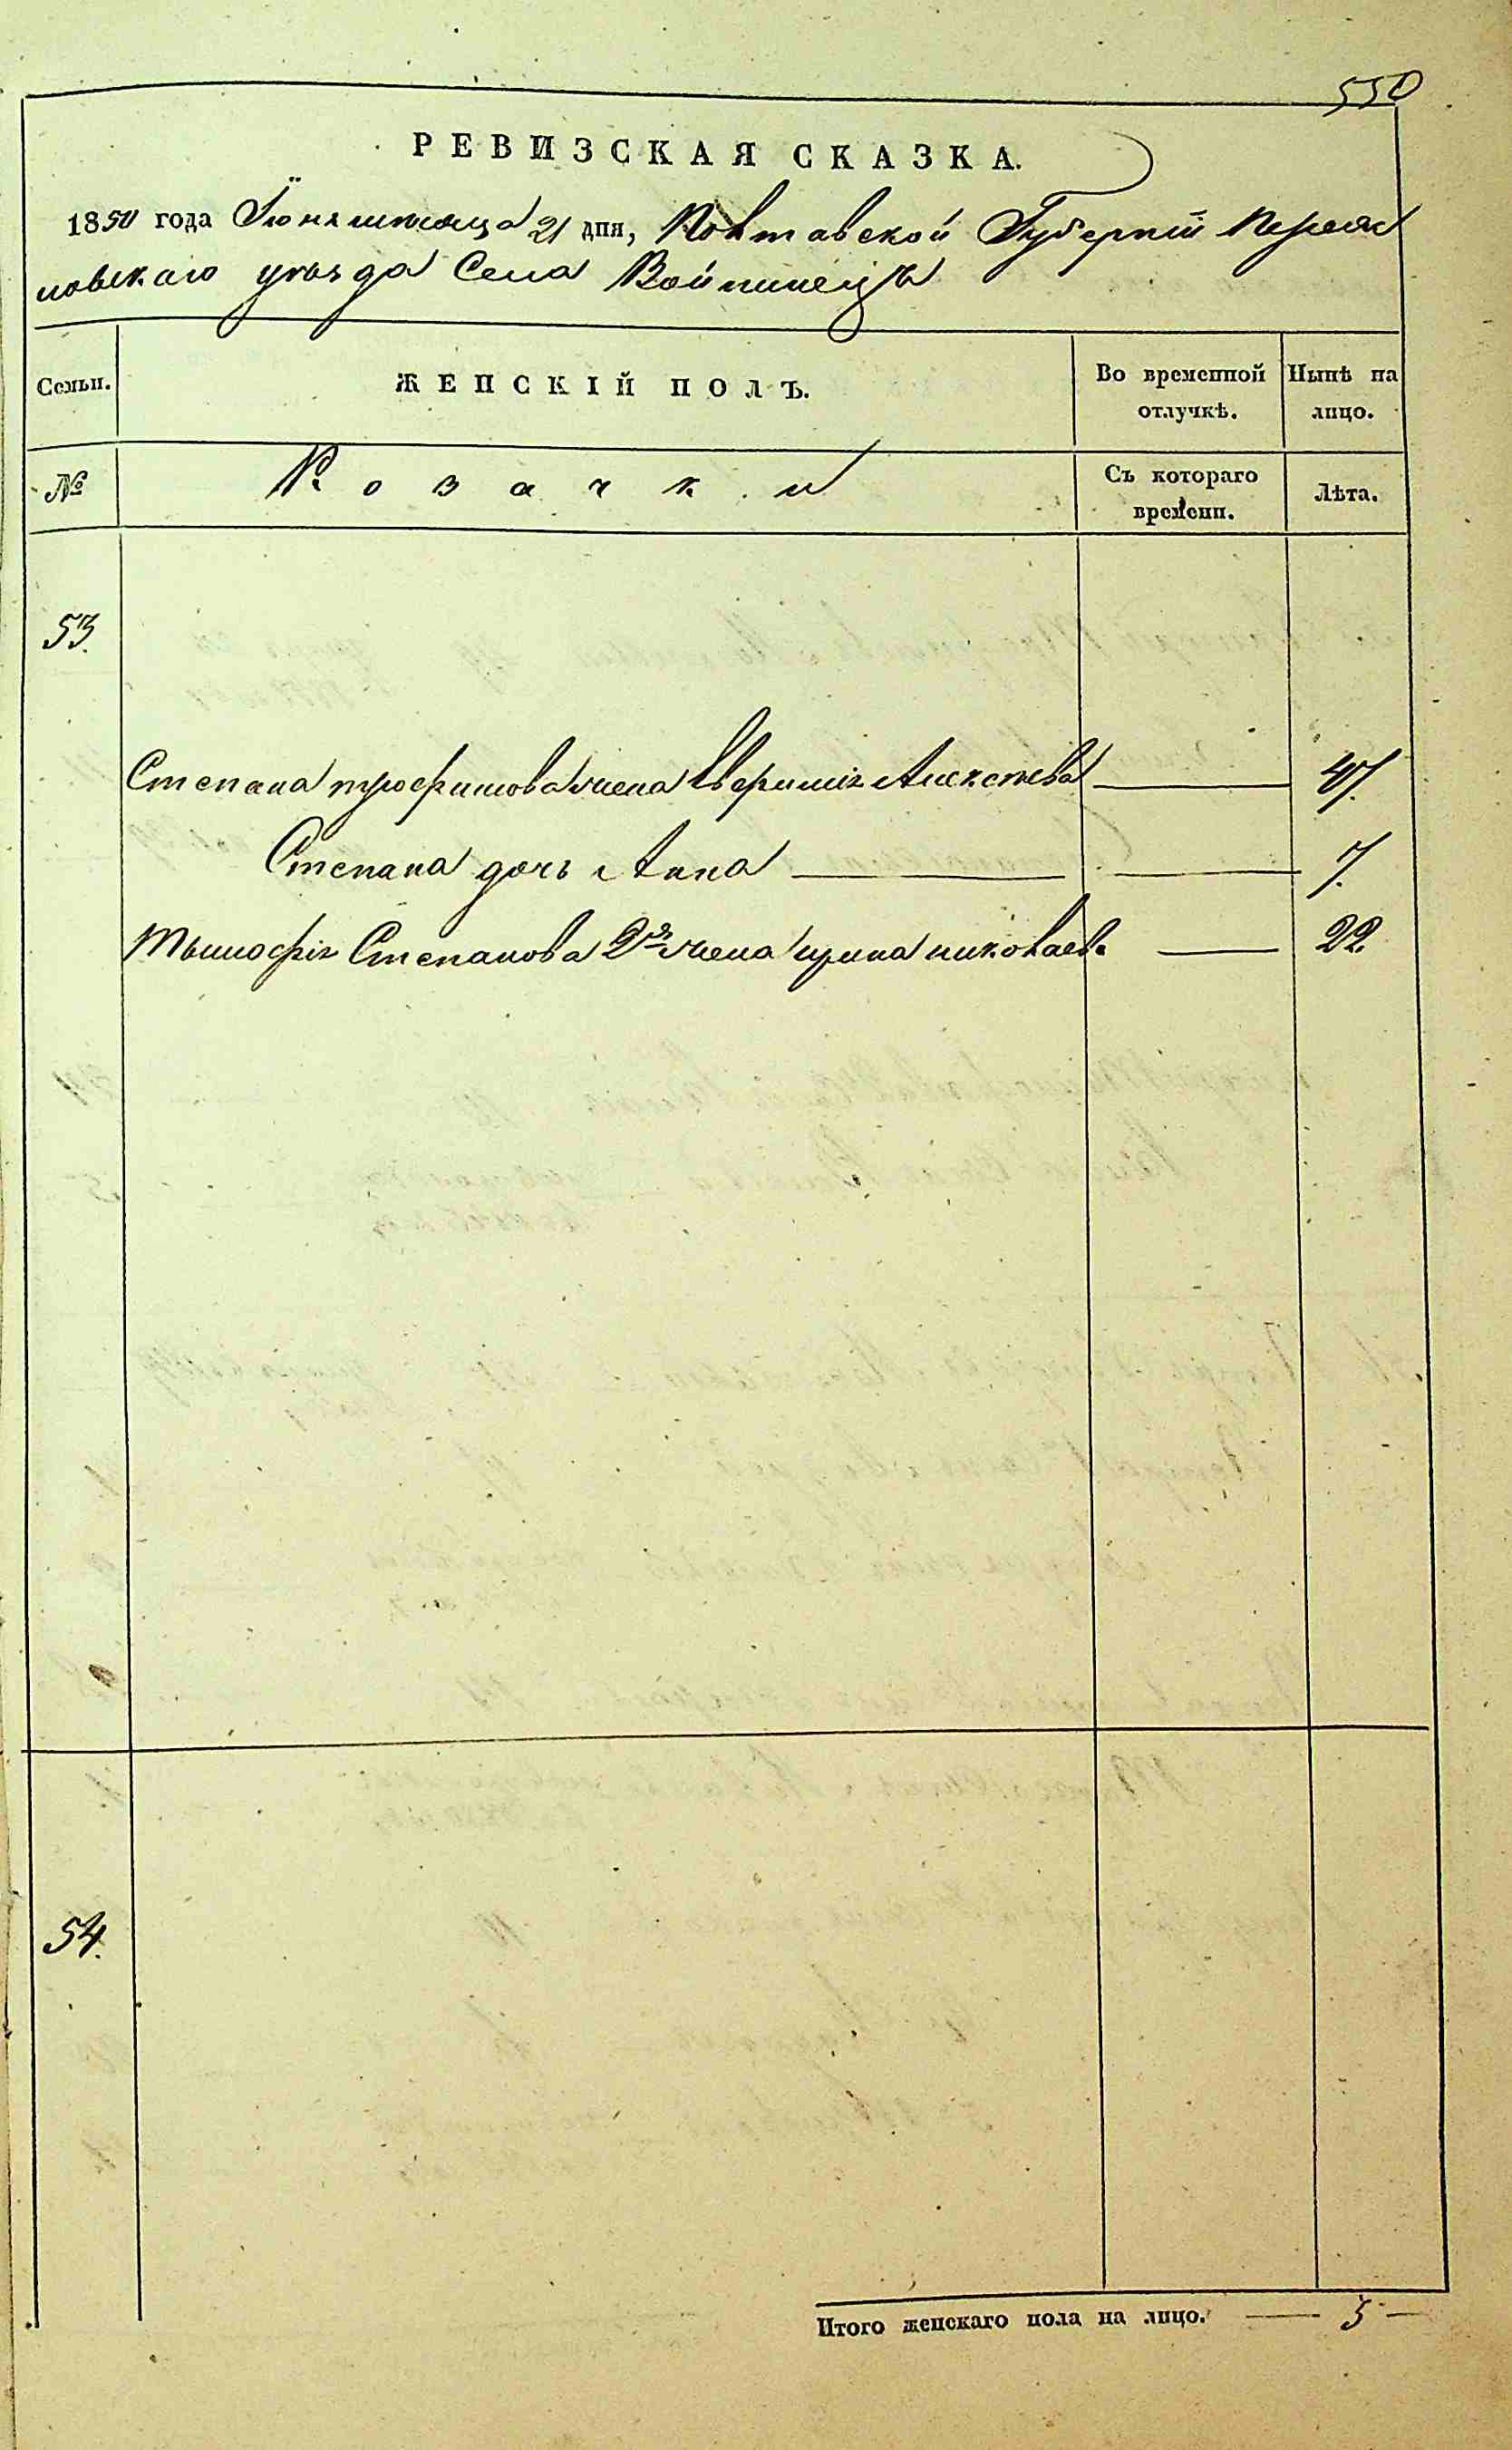 550
РЕВИЗСКАЯ СКАЗКА.
1850 года Іюня месяца 21 дня, Полтавской Губерніи Переяс
ловскаго уезда Села Войтовецъ
Семьи.
ЖЕНСКІЙ ПОЛЪ.
Во временной отлучкѣ.
Нынѣ на лицо.
№
Козачки
Съ котораго времени.
Лѣта.
53.
Степана трофимова жена Ефимія Алексеева 47.
Степана дочь Анна 7.
Тымофія Степанова 2я жена ирина николаева 22.
54.
Итого женскаго пола на лицо. 3